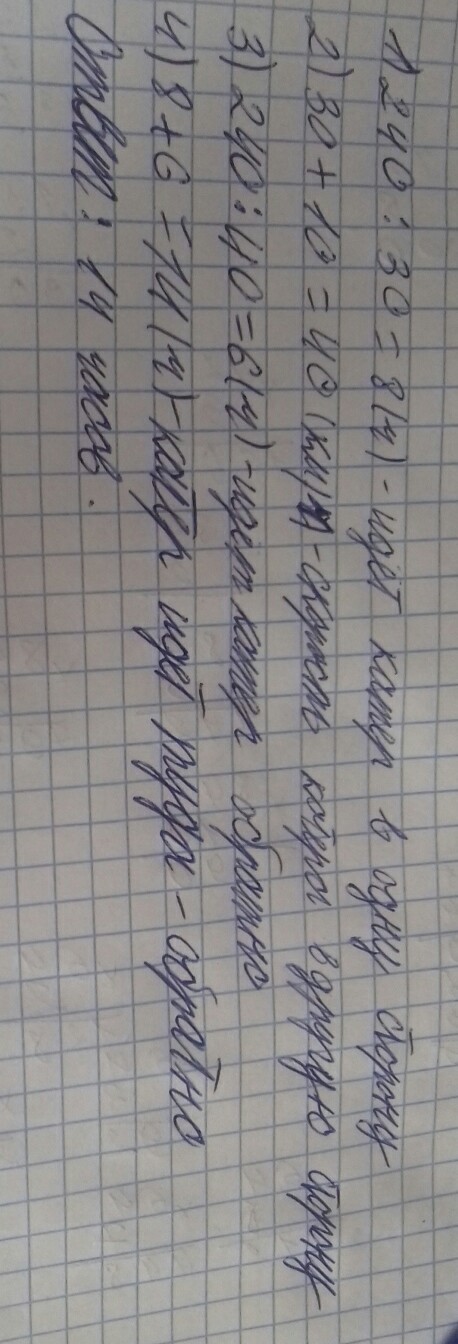 1) 240 : 30 = 8 (ч) - идёт катер в одну сторону
2) 30 + 10 = 40 (км/ч) - скорость катера в другую сторону
3) 240 : 40 = 6 (ч) - идёт катер обратно
4) 8 + 6 = 14 (ч) - катер идёт туда - обратно
Ответ: 14 часов.